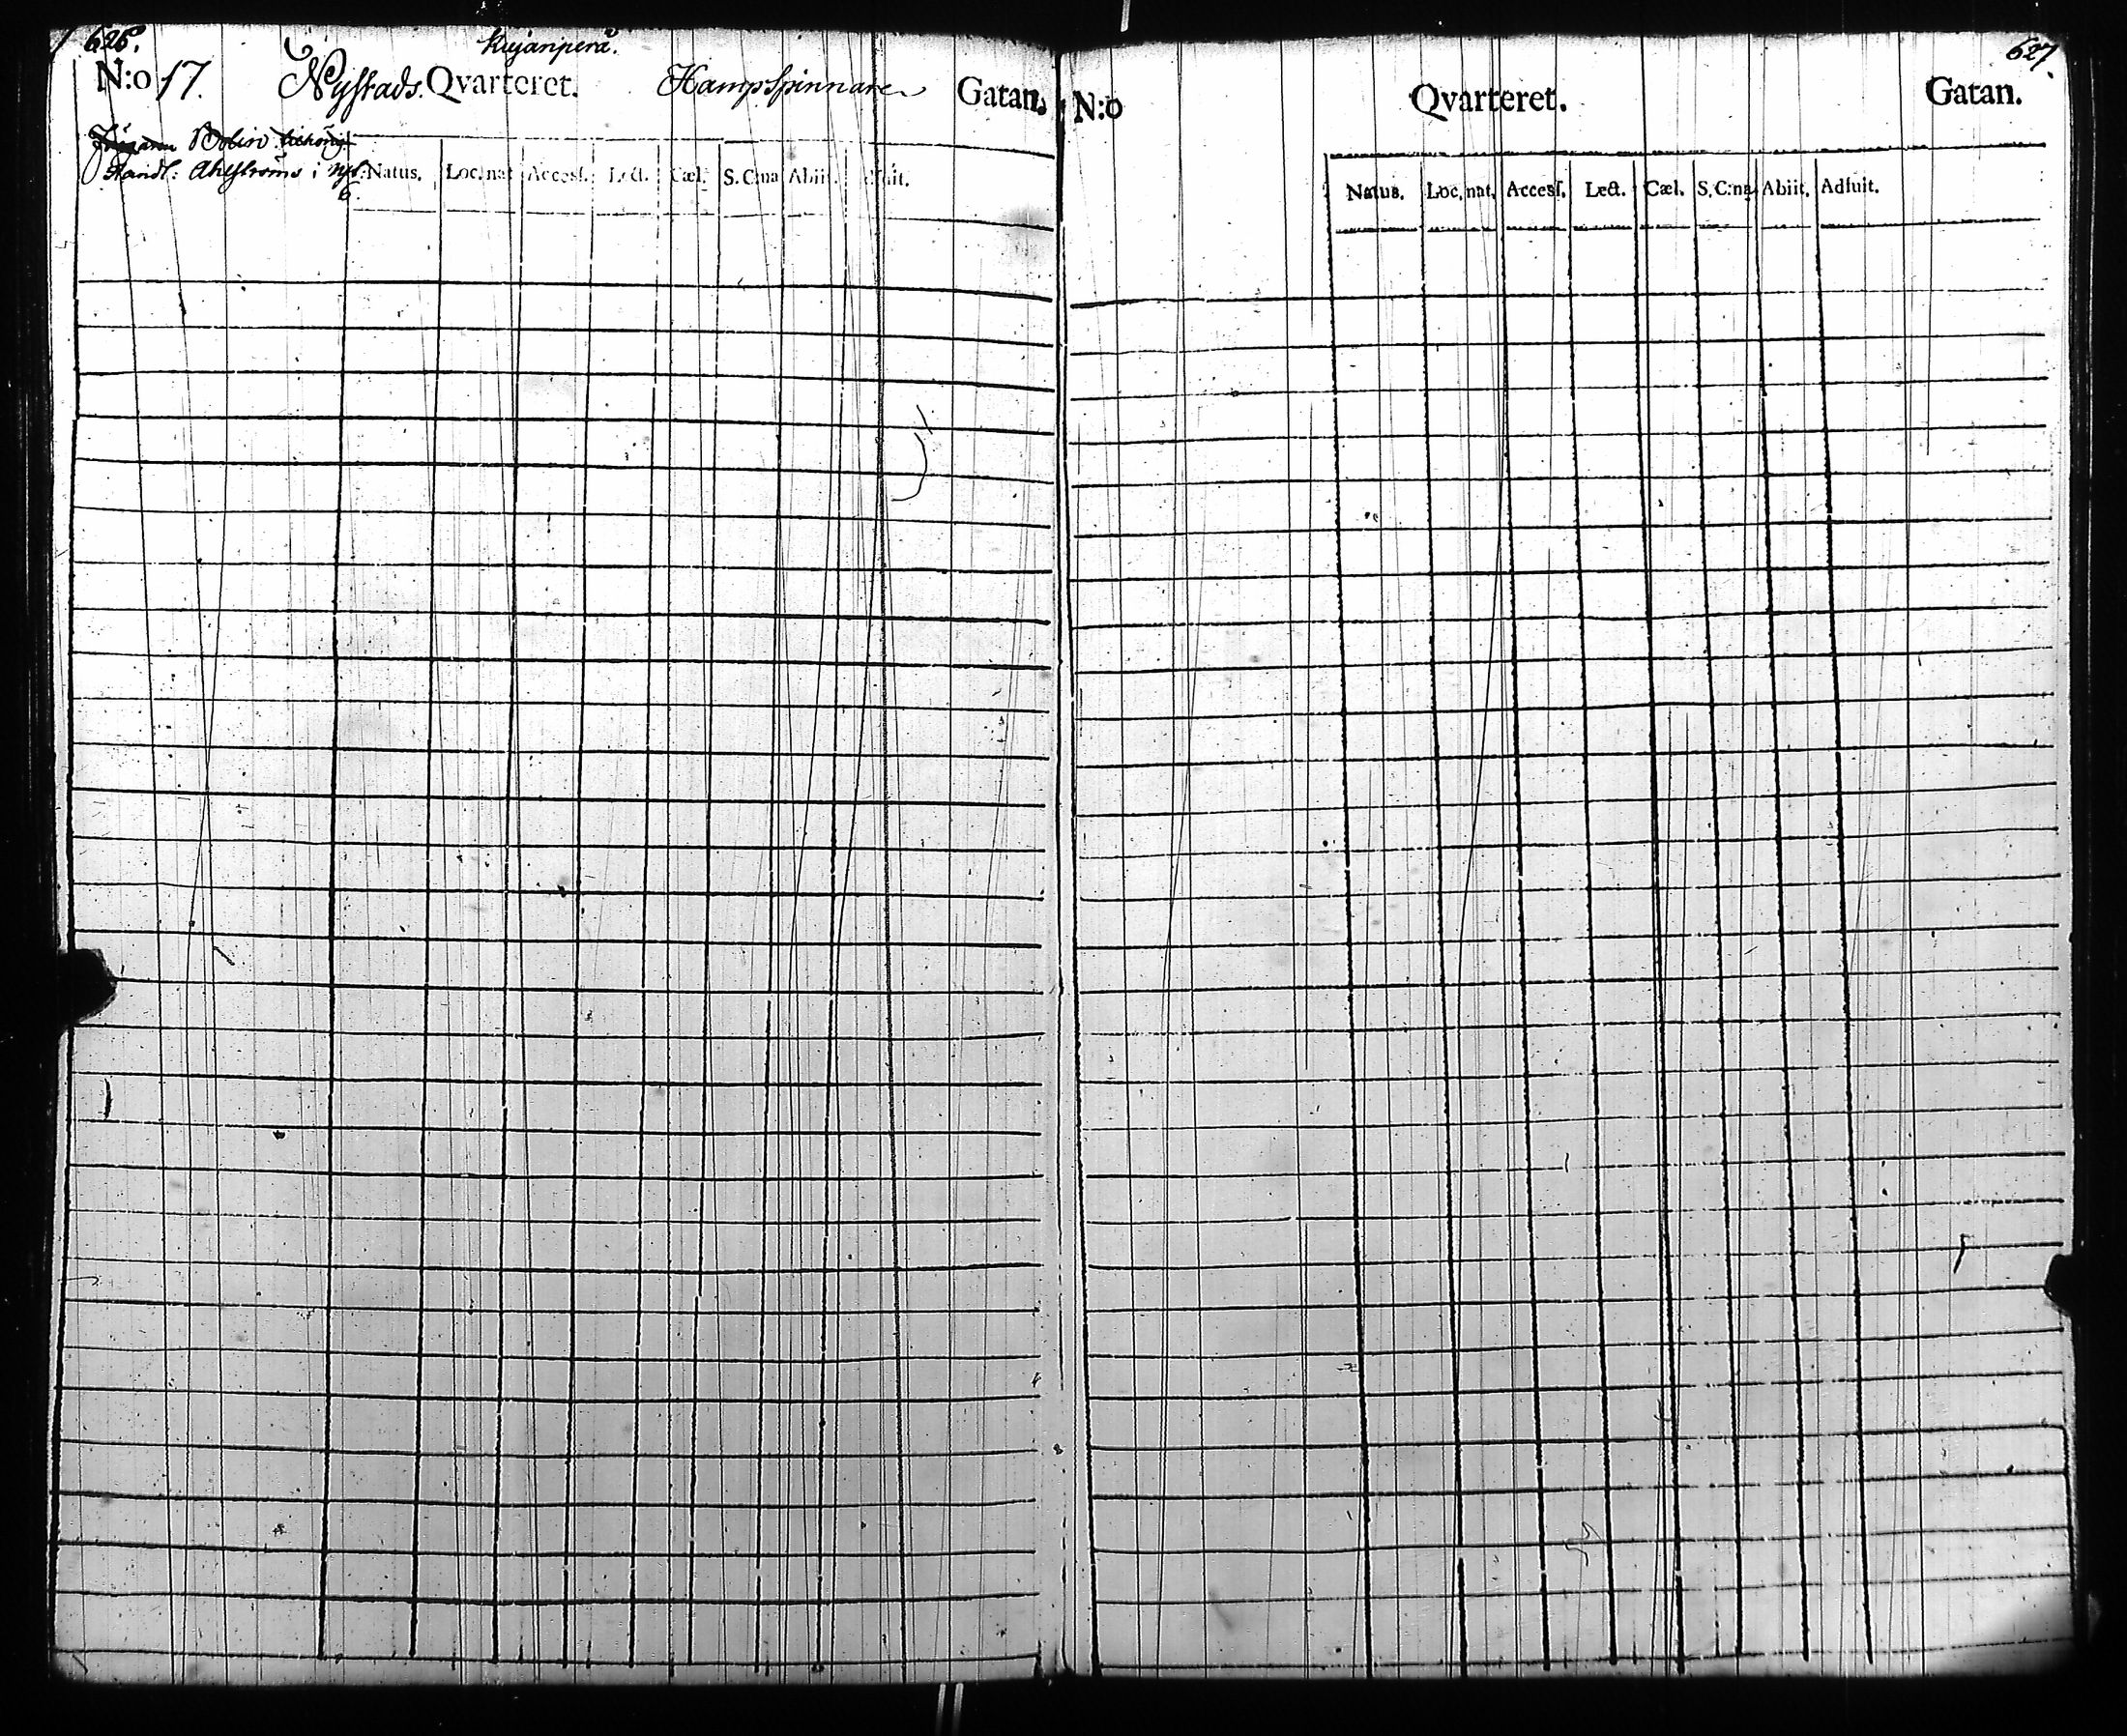 626.
Kujanperä.
N:o 17. Nystads. Qvarteret. Hampspinnare Gatan.
Bolin tilhörig
Handl: Ahlströms i Nyst:
Natus. Loc. nat. Accesſ. Lect. Cæl. S. C:na Abiit. Adfuit.
627.
N:o Qvarteret. Gatan.
Natus. Loc. nat. Accesſ. Lect. Cæl. S. C:na Abiit. Adfuit.